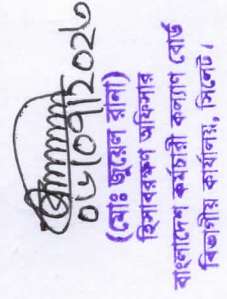 ০৮/০৭/২০২৩
(মোঃ জুয়েল রানা)
হিসাবরক্ষণ অফিসার
বাংলাদেশ কর্মচারী কল্যাণ বোর্ড
বিভাগীয় কার্যালয়, সিলেট।